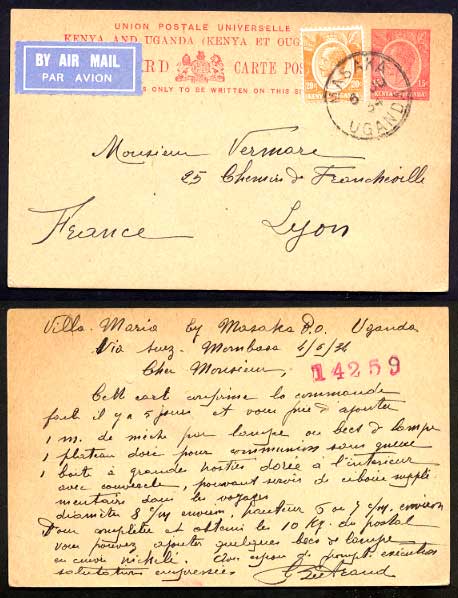 UNION POSTALE UNIVERSELLE
KENYA AND UGANDA (KENYA ET OUG
BY AIR MAIL
PAR AVION
RD CARTE POS
S ONLY TO BE WRITTEN ON THIS SI
20c 20c
KENYA AND UGANDA
15c
KENYA UGANDA
MASAKA
UGANDA
Monsieur Vermare
25 Chemin de Francheville
Lyon
France
Villa Maria by Masaka P.O. Uganda
Via Suez - Mombasa 4/5/34
Cher Monsieur,
14259
Cette cart confirme la commande
fait il y a 5 jours et vous prie d'ajouter
1 m. de mèche pour lampe ou becs de lampe
1 plateau doré pour communion sans queue
1 boite à grandes hosties dorée à l'intérieur
avec couvercle, pouvant servir de ciboire supplé
mentaire dans les voyages
diamètre 8 c/m environ, hauteur 6 ou 7 c/m. environ
Pour compléter et obtenir les 10 Kg. du postal
vous pouvez ajouter quelques becs de lampe
en cuivre nickelé. prompte exécution
salutations empressées